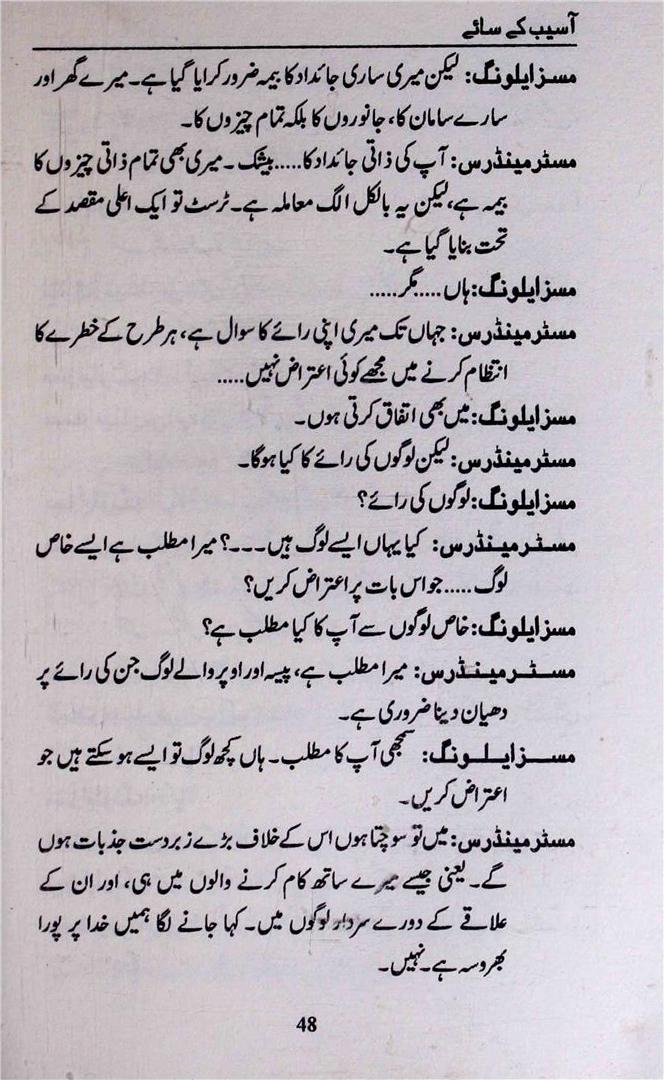 آسیب کے سائے
مسز ایلونگ: لیکن میری ساری جائداد کا بیمہ ضرور کرایا گیا ہے۔ میرے گھر اور
سارے سامان کا، جانوروں کا بلکہ تمام چیزوں کا۔
مسٹر مینڈرس: آپ کی ذاتی جائداد کا..... بیشک۔ میری بھی تمام ذاتی چیزوں کا
بیمہ ہے، لیکن یہ بالکل الگ معاملہ ہے۔ ٹرسٹ تو ایک اعلی مقصد کے
تحت بنایا گیا ہے۔
مسز ایلونگ: ہاں..... مگر.....
مسٹر مینڈرس: جہاں تک میری اپنی رائے کا سوال ہے، ہر طرح کے خطرے کا
انتظام کرنے میں مجھے کوئی اعتراض نہیں.....
مسز ایلونگ: میں بھی اتفاق کرتی ہوں۔
مسٹر مینڈرس: لیکن لوگوں کی رائے کا کیا ہوگا۔
مسز ایلونگ: لوگوں کی رائے؟
مسٹر مینڈرس: کیا یہاں ایسے لوگ ہیں ۔۔۔؟ میرا مطلب ہے ایسے خاص
لوگ ..... جو اس بات پر اعتراض کریں؟
مسز ایلونگ: خاص لوگوں سے آپ کا کیا مطلب ہے؟
مسٹر مینڈرس: میرا مطلب ہے، پیسہ اور اوپر والے لوگ جن کی رائے پر
دھیان دینا ضروری ہے۔
مسز ایلونگ: سمجھی آپ کا مطلب۔ ہاں کچھ لوگ تو ایسے ہو سکتے ہیں جو
اعتراض کریں۔
مسٹر مینڈرس: میں تو سوچتا ہوں اس کے خلاف بڑے زبردست جذبات ہوں
گے۔ یعنی جیسے میرے ساتھ کام کرنے والوں میں ہی، اور ان کے
علاقے کے دورے سردار لوگوں میں۔ کہا جانے لگا ہمیں خدا پر پورا
بھروسہ ہے۔ نہیں۔
48